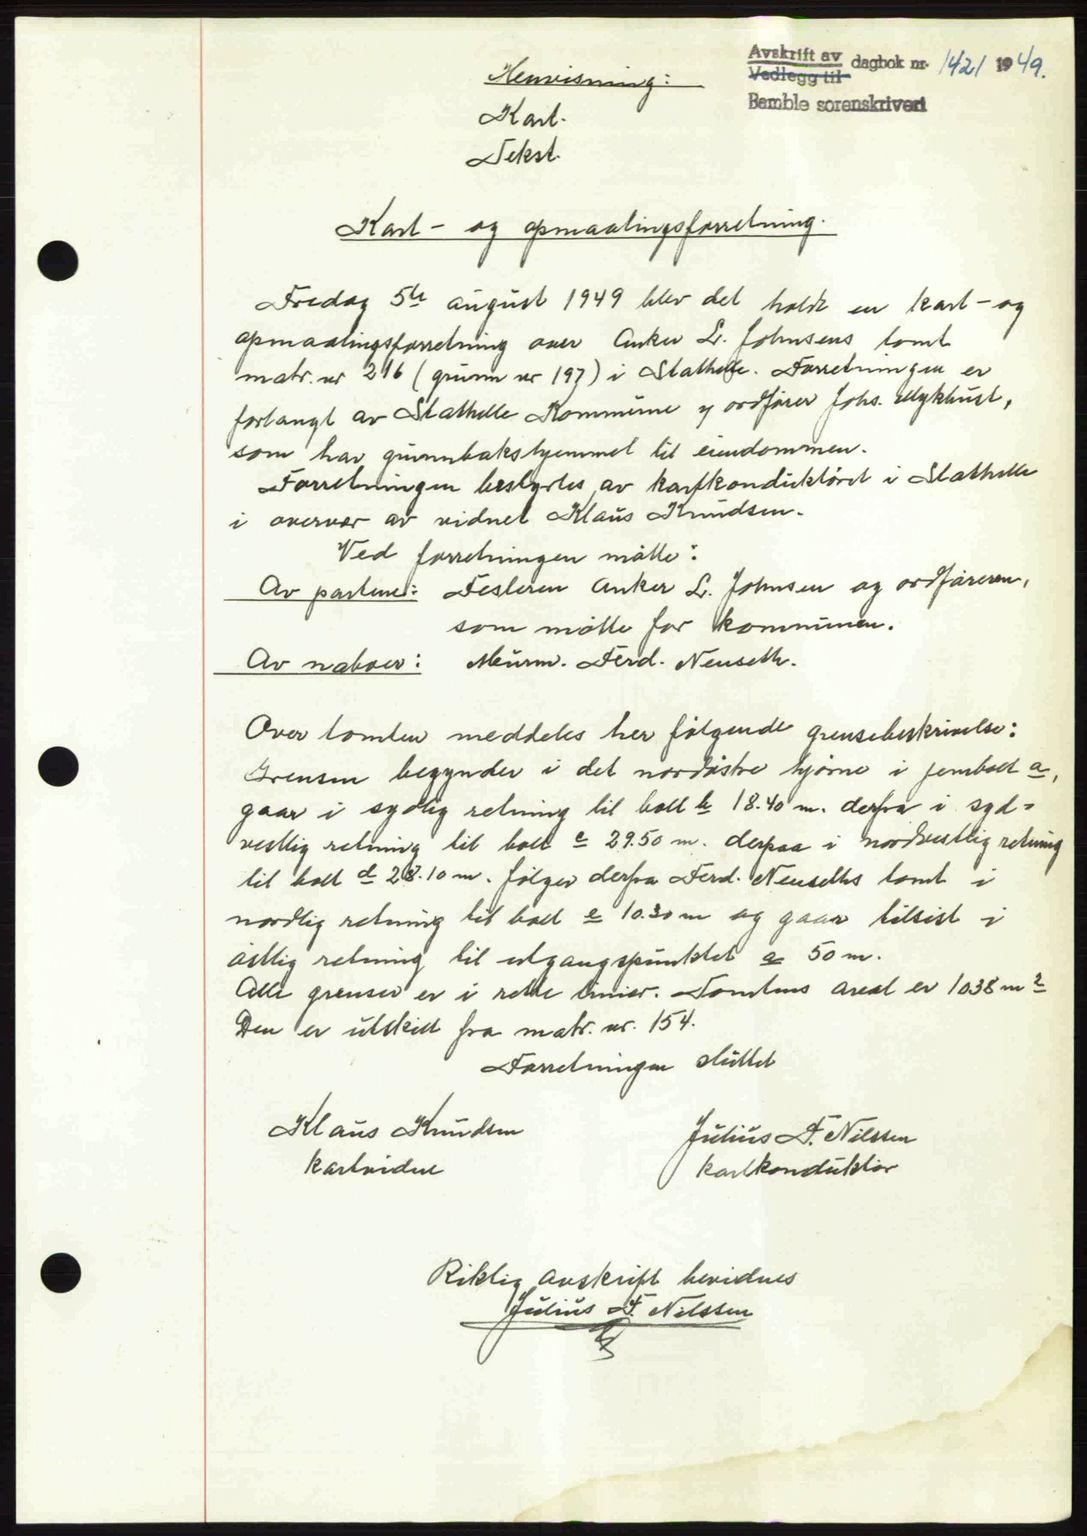 Avskrift av
Vedlegg til
dagbok nr. 1421 1949.
Bamble sorenskriveri
Henvisning:
Kart.
Tekst.
Kart- og opmaalingsforretning.
Fredag 5te august 1949 blev det holdt en kart- og
opmaalingsforretning over Anker L. Johnsens tomt
matr. nr 216 (grunn nr 197) i Stathelle. Forretningen er
forlangt av Stathelle Kommune v/ ordfører Johs. Myhust,
som har grunnbokshjemmel til eiendommen.
Forretningen bestyrtes av kartkonduktøret i Stathelle
i overvær av vidnet Klaus Knudsen.
Ved forretningen møtte:
Av partene: Festeren Anker L. Johnsen og ordføreren,
som møtte for kommunen.
Av naboer: Murm. Ferd. Neuseth.
Over tomten meddeles her følgende grensebeskrivelse:
Grensen begynder i det nordøstre hjørne i jernbolt a,
gaar i sydlig retning til bolt b 18.40 m. derfra i syd-
vestlig retning til bolt c 29.50 m. derpaa i nordvestlig retning
til bolt d 28.10 m. følger derfra Ferd. Neuseths tomt i
nordlig retning til bolt e 10.30 m og gaar tilsist i
østlig retning til utgangspunktet a 50 m.
Alle grenser er i rette linier. Tomtens areal er 1038 m2
Den er utskilt fra matr. nr. 154.
Forretningen sluttet
Klaus Knudsen Julius F. Nilssen
kartvidne kartkonduktør
Riktig avskrift bevidnes
Julius F. Nilssen